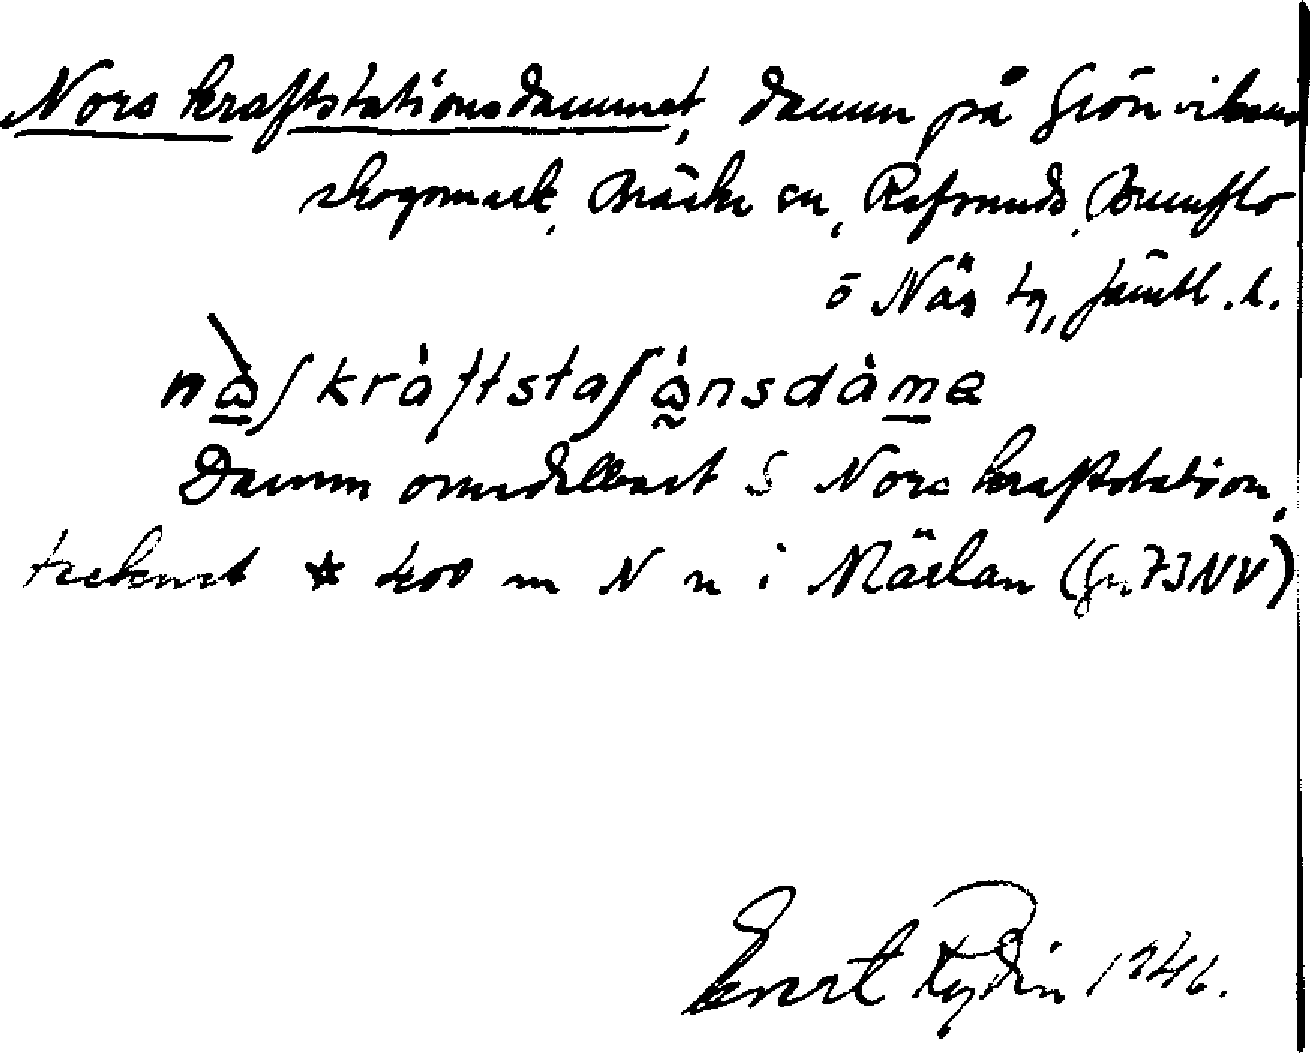 Nors kraftstationsdammet, damm på Grönvikens
skogsmark, Bräcke sn, Refsunds, Brunflo
o Näs tg, Jämtl. l.
nὼʃkràftstaʃὼnsdàme
Damm omedelbart S Nors kraftstation,
tecknet * 400 m N n i Mälan (Gn. 73 NV)
Evert Rydin 1946.